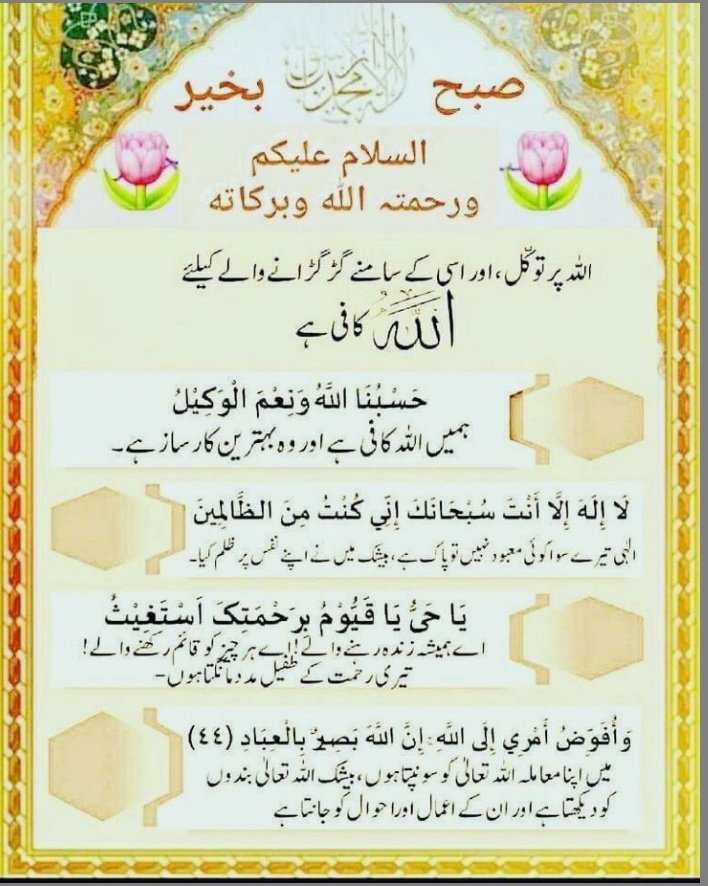 لا إله إلا الله محمد رسول الله
صبح بخير
السلام علیکم
ورحمتہ اللہ وبرکاتہ
اللہ پر توکّل، اور اسی کے سامنے گڑگڑانے والے کیلئے
اللّٰہُ کافی ہے
حَسْبُنَا اللَّهُ وَنِعْمَ الْوَكِيْلُ
ہمیں اللہ کافی ہے اور وہ بہترین کارساز ہے۔
لَا إِلَهَ إِلَّا أَنْتَ سُبْحَانَكَ إِنِّي كُنْتُ مِنَ الظَّالِمِينَ
الٰہی تیرے سوا کوئی معبود نہیں تو پاک ہے، بیشک میں نے اپنے نفس پر ظلم کیا۔
يَا حَىُّ يَا قَيُّوْمُ بِرَحْمَتِکَ اَسْتَغِيْثُ
اے ہمیشہ زندہ رہنے والے! اے ہر چیز کو قائم رکھنے والے!
تیری رحمت کے طفیل مدد مانگتا ہوں-
وَأُفَوِّضُ أَمْرِي إِلَى اللَّهِ ۚ إِنَّ اللَّهَ بَصِيرٌ بِالْعِبَادِ (٤٤)
میں اپنا معاملہ اللہ تعالیٰ کو سونپتا ہوں، بیشک اللہ تعالیٰ بندوں
کو دیکھتا ہے اور ان کے اعمال اور احوال کو جانتا ہے